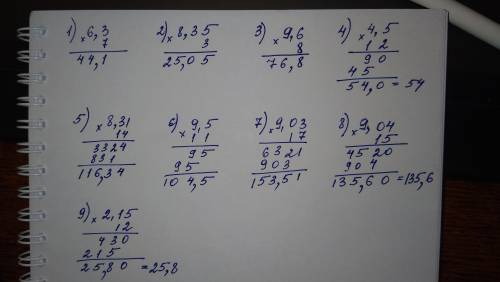 1) × 6,3
7
44,1
2) × 8,35
3
25,05
3) × 9,6
8
76,8
4) × 4,5
12
90
45
54,0 = 54
5) × 8,31
14
3324
831
116,34
6) × 9,5
11
95
95
104,5
7) × 9,03
17
6321
903
153,51
8) × 9,04
15
4520
904
135,60 = 135,6
9) × 2,15
12
430
215
25,80 = 25,8